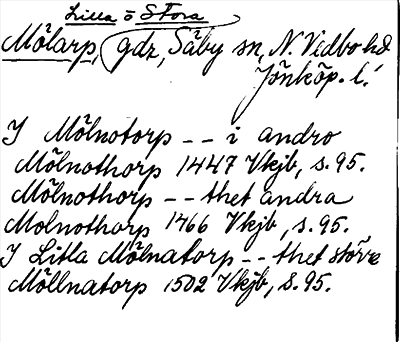 Lilla o Stora
Mölarp, gdr, Säby sn, N. Vedbo hd
Jönköp. l.
I Mölnotorp -- i andro
Mölnothorp 1447 Vkjb, s. 95.
Mölnothorp -- thet andra
Molnothorp 1466 Vkjb, s. 95.
I Litla Mölnatorp -- thet större
Möllnatorp 1502 Vkjb, s. 95.